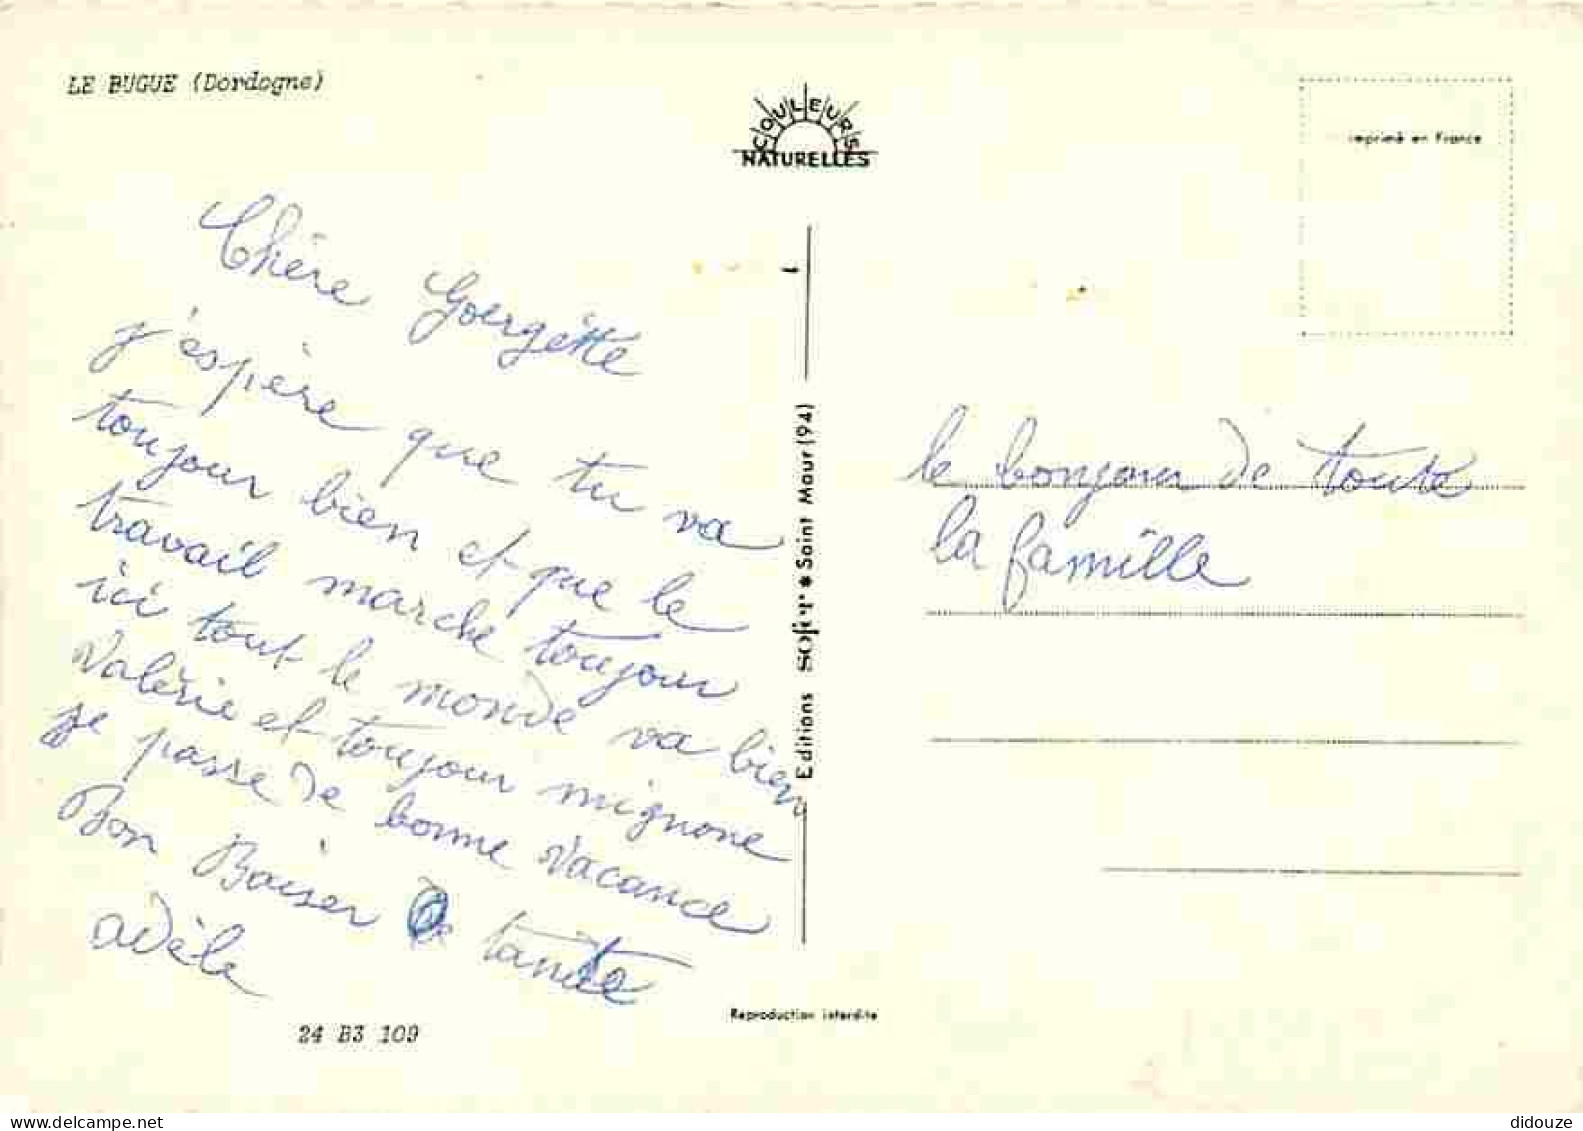 LE BUGUE (Dordogne)
COULEURS
NATURELLES
imprimé en France
Chère Goergètte
j'espère que tu va
toujour bien et que le
travail marche toujour
ici tout le monde va bien
Valèrie et toujour mignone
je passe de bonne vacance
Bon Baiser de tante
adèle
le bonjour de toute
la famille
Editions sofer * Saint Maur (94)
24 B3 109
Reproduction interdite
didouze